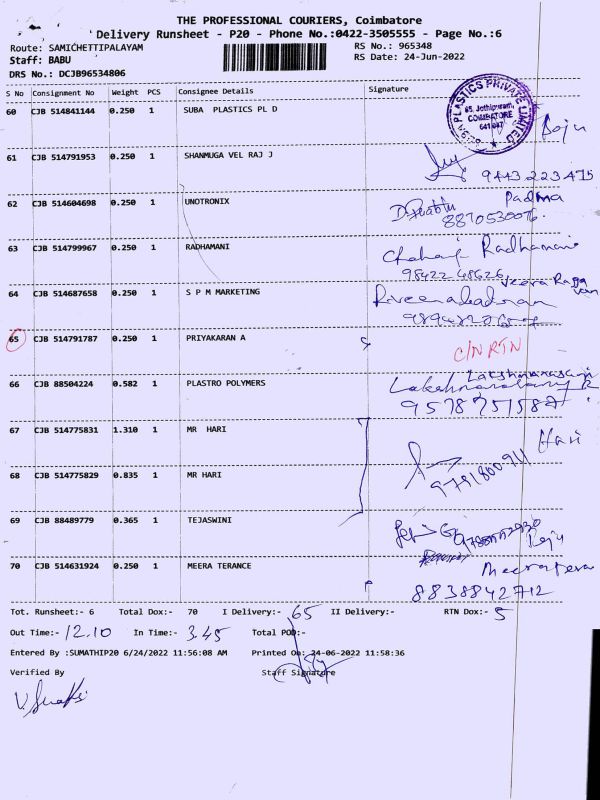 THE PROFESSIONAL COURIERS, Coimbatore
Delivery Runsheet - P20 - Phone No.:0422-3505555 - Page No.:6
Route: SAMICHETTIPALAYAM RS No.: 965348
Staff: BABU RS Date: 24-Jun-2022
DRS No.: DCJB96534806
S No Consignment No Weight PCS Consignee Details Signature
60 CJB 514841144 0.250 1 SUBA PLASTICS PL D
PLASTICS PRIVATE LIMITED
65, Jothipuram,
COIMBATORE
641 047
61 CJB 514791953 0.250 1 SHANMUGA VEL RAJ J
9443223475
62 CJB 514604698 0.250 1 UNOTRONIX Padma
8870530076
63 CJB 514799967 0.250 1 RADHAMANI Radhamani
98422 48626
64 CJB 514687658 0.250 1 S P M MARKETING
65 CJB 514791787 0.250 1 PRIYAKARAN A
C/N RTN
66 CJB 88504224 0.582 1 PLASTRO POLYMERS
9578751587
67 CJB 514775831 1.310 1 MR HARI Hari
9791800911
68 CJB 514775829 0.835 1 MR HARI
69 CJB 88489779 0.365 1 TEJASWINI
70 CJB 514631924 0.250 1 MEERA TERANCE
8838842712
Tot. Runsheet:- 6 Total Dox:- 70 I Delivery:- 65 II Delivery:- RTN Dox:- 5
Out Time:- 12.10 In Time:- 3.45 Total POD:-
Entered By :SUMATHIP20 6/24/2022 11:56:08 AM Printed On: 24-06-2022 11:58:36
Verified By Staff Signature